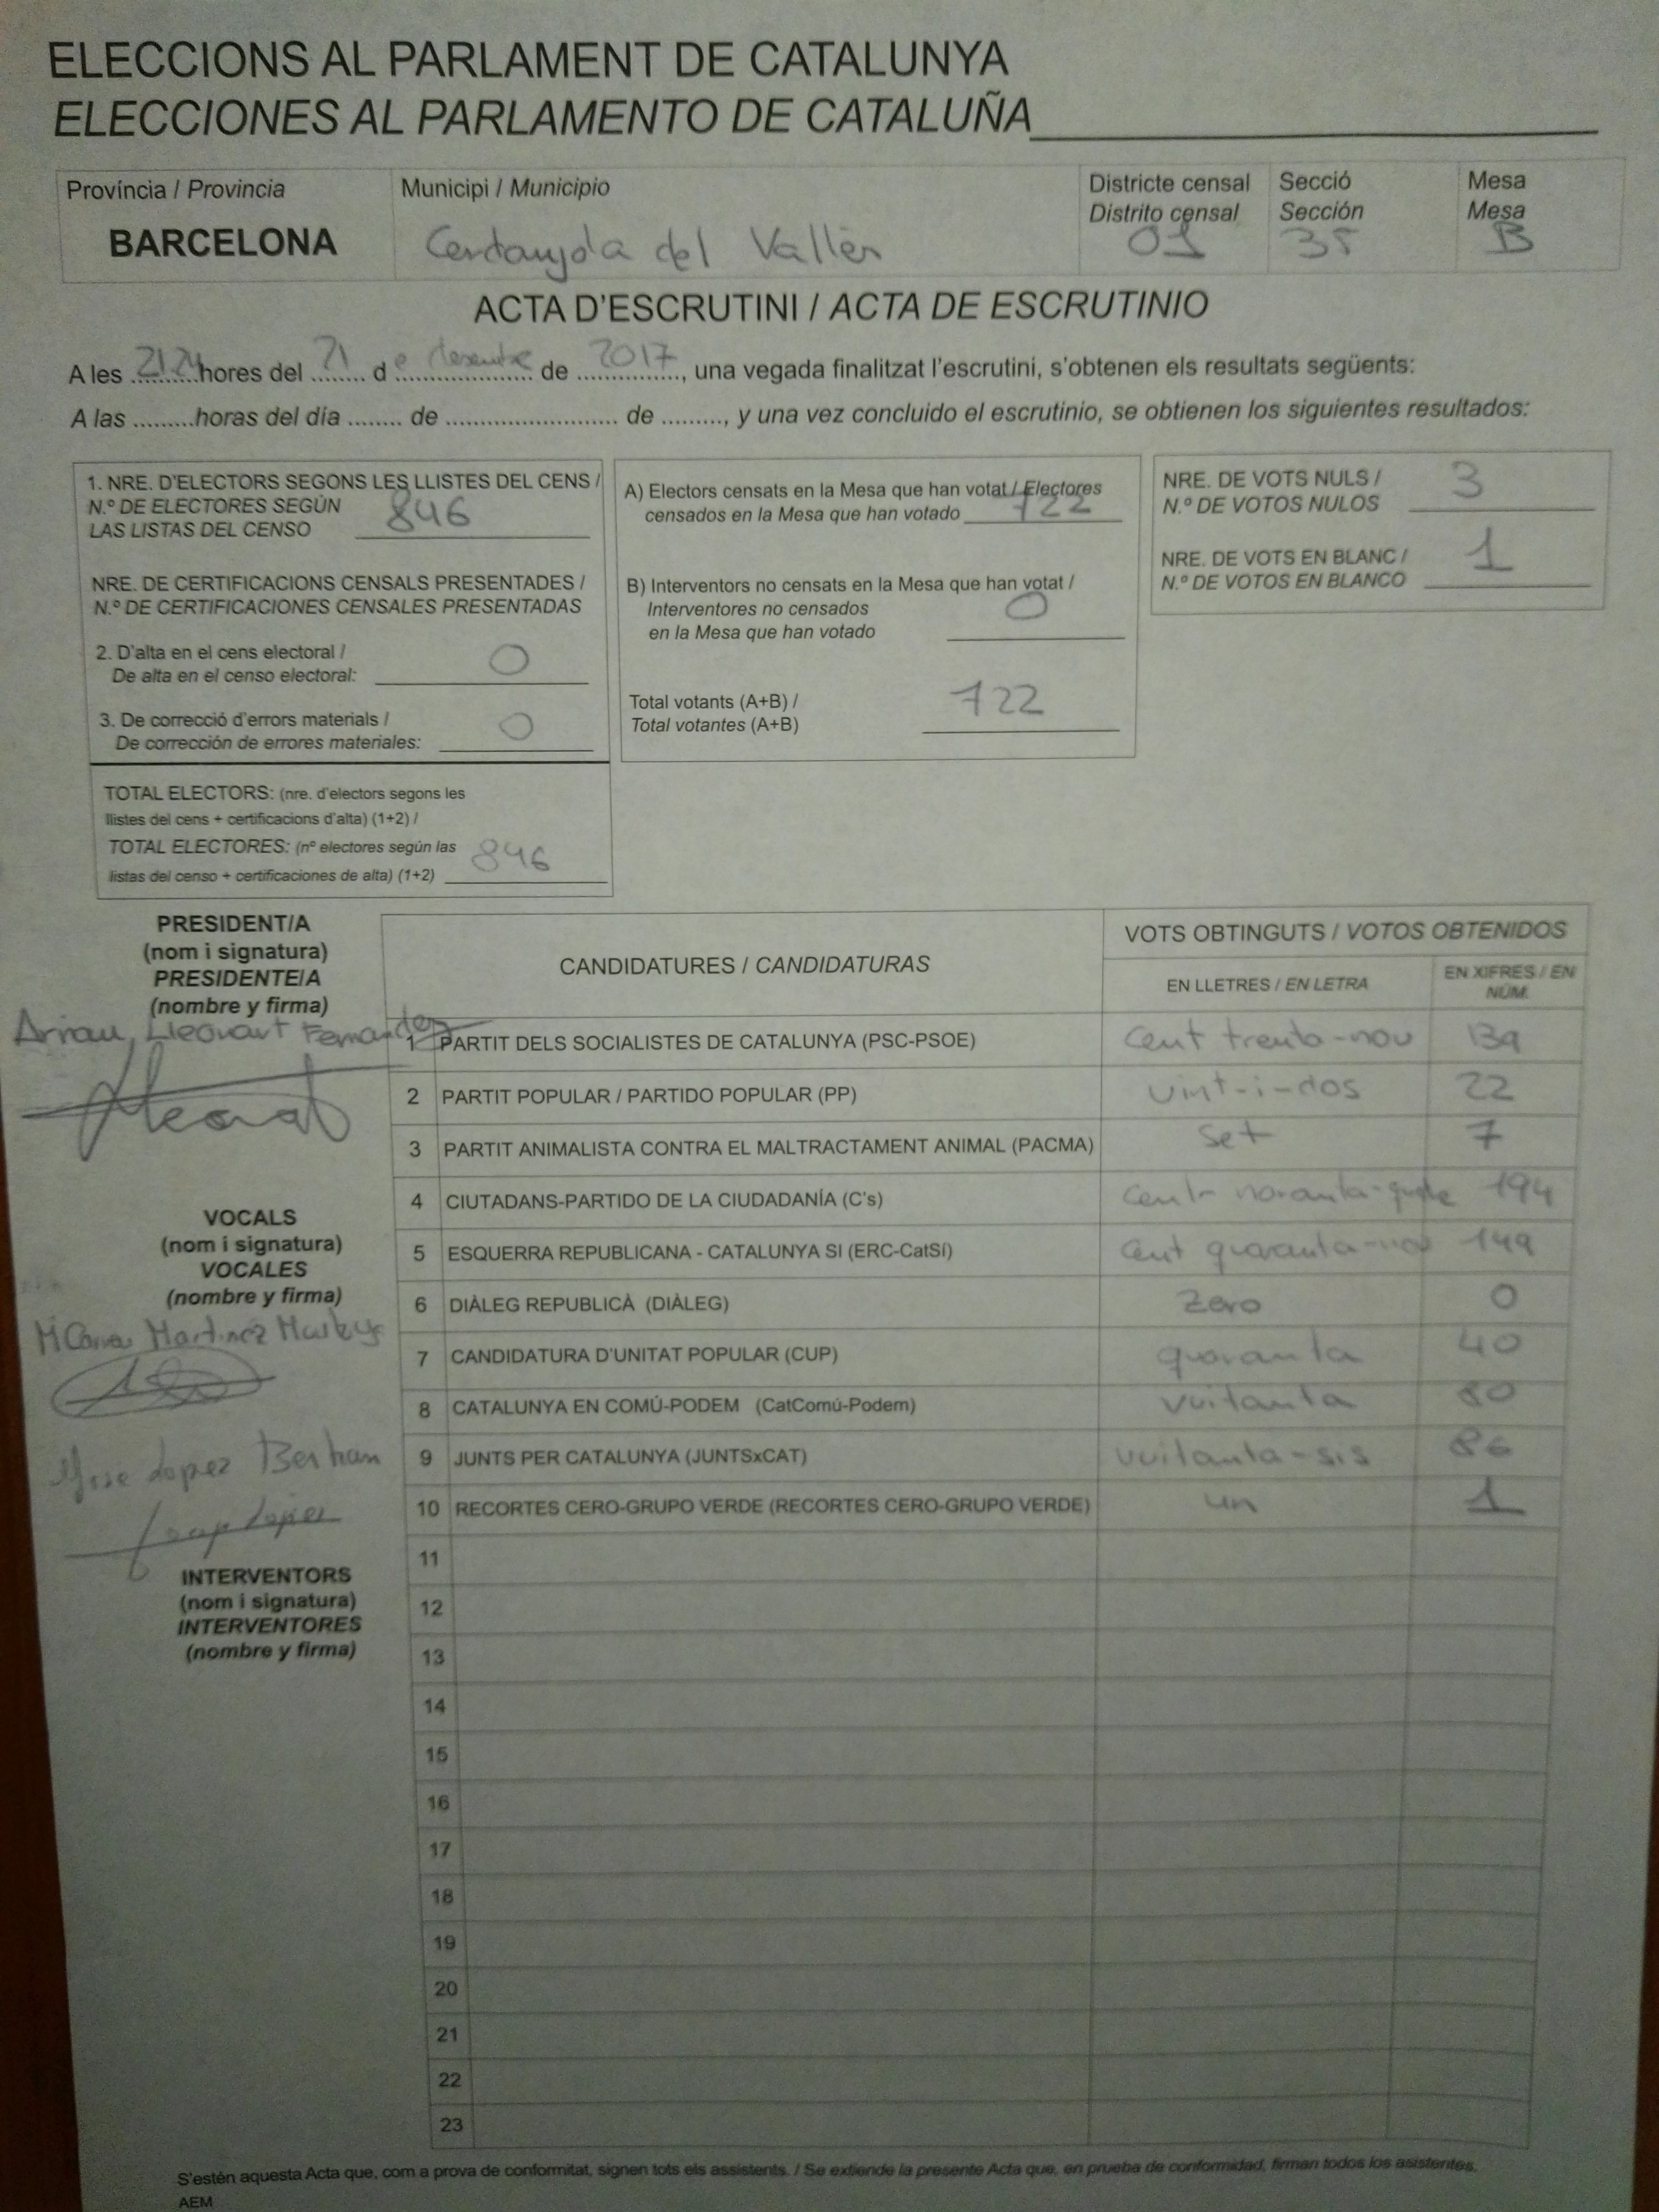 ELECCIONS AL PARLAMENT DE CATALUNYA
ELECCIONES AL PARLAMENTO DE CATALUÑA
Província / Provincia
BARCELONA
Municipi / Municipio
Cerdanyola del Vallès
Districte censal
Distrito censal
01
Secció
Sección
35
Mesa
Mesa
B
ACTA D'ESCRUTINI / ACTA DE ESCRUTINIO
A les 21:24 hores del 21 d e desembre de 2017, una vegada finalitzat l'escrutini, s'obtenen els resultats següents:
A las .........horas del día ........ de .......................... de ........., y una vez concluido el escrutinio, se obtienen los siguientes resultados:
1. NRE. D'ELECTORS SEGONS LES LLISTES DEL CENS /
N.º DE ELECTORES SEGÚN
LAS LISTAS DEL CENSO 846
NRE. DE CERTIFICACIONS CENSALS PRESENTADES /
N.º DE CERTIFICACIONES CENSALES PRESENTADAS
2. D'alta en el cens electoral /
De alta en el censo electoral: 0
3. De correcció d'errors materials /
De corrección de errores materiales: 0
TOTAL ELECTORS: (nre. d'electors segons les
llistes del cens + certificacions d'alta) (1+2) /
TOTAL ELECTORES: (nº electores según las
listas del censo + certificaciones de alta) (1+2) 846
A) Electors censats en la Mesa que han votat / Electores
censados en la Mesa que han votado 722
B) Interventors no censats en la Mesa que han votat /
Interventores no censados
en la Mesa que han votado 0
Total votants (A+B) /
Total votantes (A+B) 722
NRE. DE VOTS NULS /
N.º DE VOTOS NULOS 3
NRE. DE VOTS EN BLANC /
N.º DE VOTOS EN BLANCO 1
PRESIDENT/A
(nom i signatura)
PRESIDENTE/A
(nombre y firma)
Arnau Lleonart Fernandez
VOCALS
(nom i signatura)
VOCALES
(nombre y firma)
Martinez
Lopez
INTERVENTORS
(nom i signatura)
INTERVENTORES
(nombre y firma)
CANDIDATURES / CANDIDATURAS
VOTS OBTINGUTS / VOTOS OBTENIDOS
EN LLETRES / EN LETRA
EN XIFRES / EN
NÚM.
1 PARTIT DELS SOCIALISTES DE CATALUNYA (PSC-PSOE) Cent trenta-nou 139
2 PARTIT POPULAR / PARTIDO POPULAR (PP) vint-i-dos 22
3 PARTIT ANIMALISTA CONTRA EL MALTRACTAMENT ANIMAL (PACMA) Set 7
4 CIUTADANS-PARTIDO DE LA CIUDADANÍA (C's) Cent noranta-quatre 194
5 ESQUERRA REPUBLICANA - CATALUNYA SI (ERC-CatSí) Cent quaranta-nou 149
6 DIÀLEG REPUBLICÀ (DIÀLEG) Zero 0
7 CANDIDATURA D'UNITAT POPULAR (CUP) quaranta 40
8 CATALUNYA EN COMÚ-PODEM (CatComú-Podem) vuitanta 80
9 JUNTS PER CATALUNYA (JUNTSxCAT) vuitanta-sis 86
10 RECORTES CERO-GRUPO VERDE (RECORTES CERO-GRUPO VERDE) un 1
11
12
13
14
15
16
17
18
19
20
21
22
23
S'estén aquesta Acta que, com a prova de conformitat, signen tots els assistents. / Se extiende la presente Acta que, en prueba de conformidad, firman todos los asistentes.
AEM